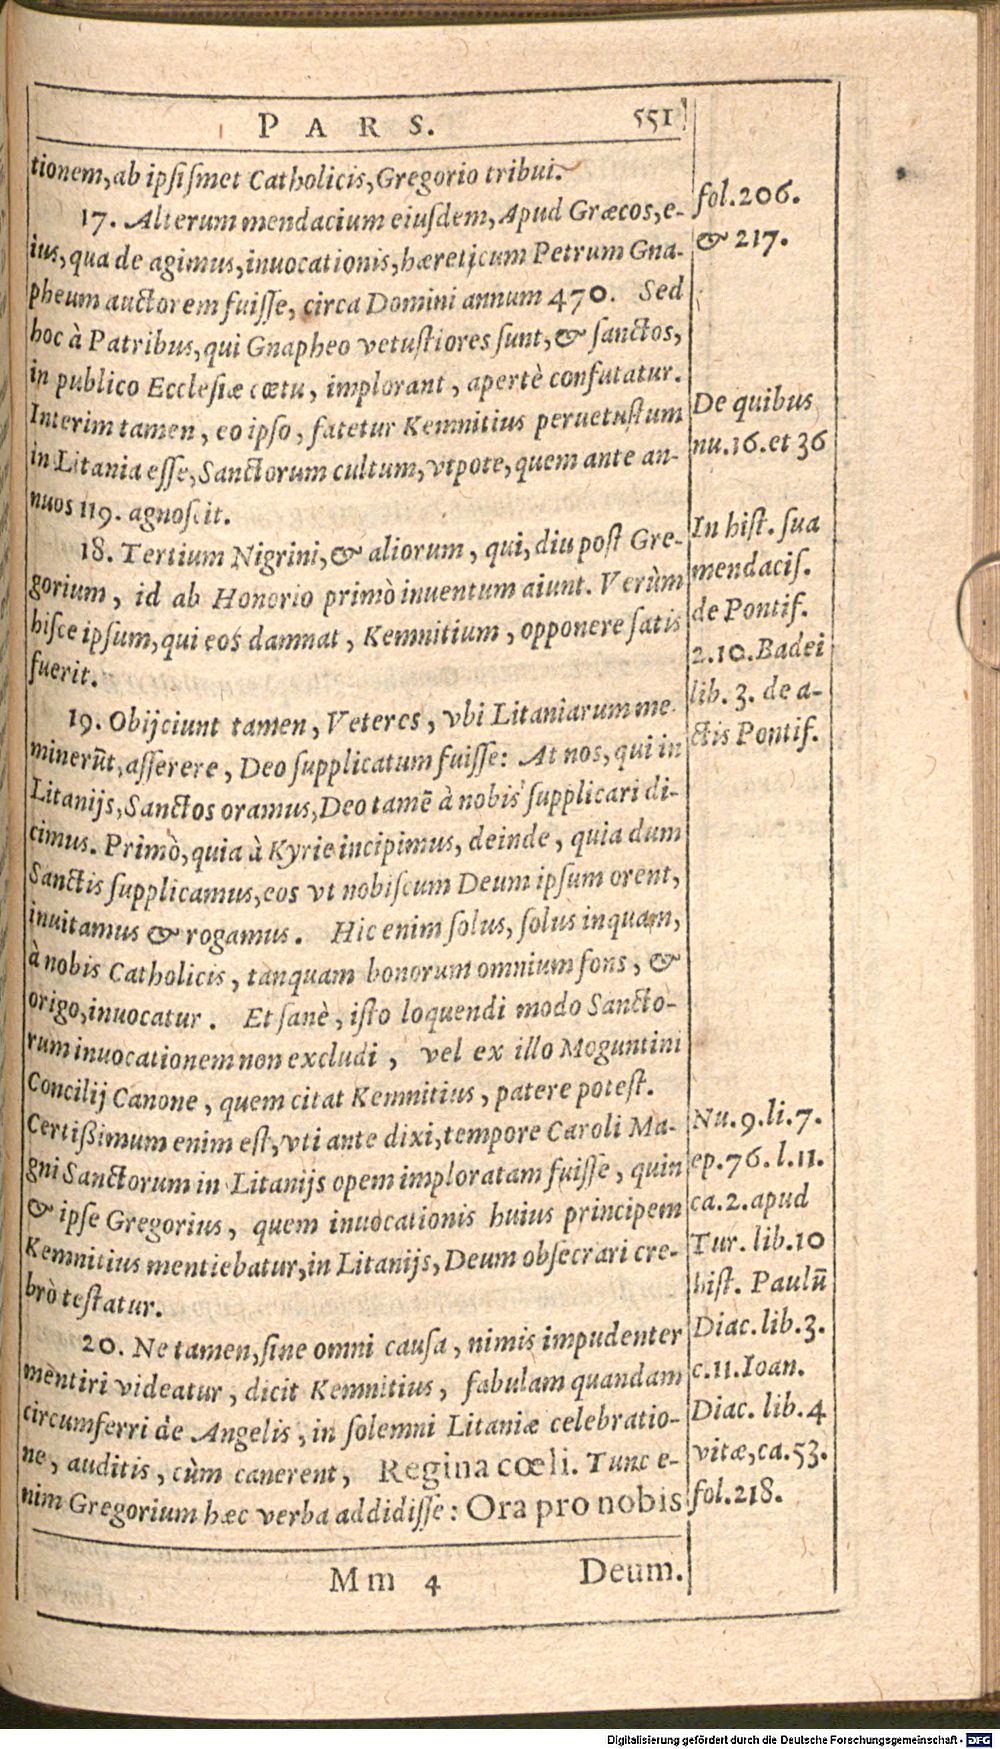 PARS. 551
tionem, ab ipsiſmet Catholicis, Gregorio tribui.
17. Alterum mendacium eiuſdem, Apud Græcos, e-
ius, qua de agimus, inuocationis, hæreticum Petrum Gna-
pheum auctorem fuiſſe, circa Domini annum 470. Sed
hoc à Patribus, qui Gnapheo vetuſtiores ſunt, & ſanctos,
in publico Ecclesiæ cœtu, implorant, apertè confutatur.
Interim tamen, eo ipſo, fatetur Kemnitius peruetuſtum
in Litania eſſe, Sanctorum cultum, vtpote, quem ante an-
nuos 119. agnoſcit.
18. Tertium Nigrini, & aliorum, qui, diu poſt Gre-
gorium, id ab Honorio primò inuentum aiunt. Verùm
hiſce ipſum, qui eos damnat, Kemnitium, opponere ſatis
fuerit.
19. Obijciunt tamen, Veteres, vbi Litaniarum me
minerũt, aſſerere, Deo ſupplicatum fuiſſe: At nos, qui in
Litanijs, Sanctos oramus, Deo tamẽ à nobis ſupplicari di-
cimus. Primò, quia à Kyrie incipimus, deinde, quia dum
Sanctis ſupplicamus, eos vt nobiſcum Deum ipſum orent,
inuitamus & rogamus. Hic enim ſolus, ſolus inquam,
à nobis Catholicis, tanquam bonorum omnium fons, &
origo, inuocatur. Et ſanè, iſto loquendi modo Sancto-
rum inuocationem non excludi, vel ex illo Moguntini
Concilij Canone, quem citat Kemnitius, patere poteſt.
Certißimum enim eſt, vti ante dixi, tempore Caroli Ma-
gni Sanctorum in Litanijs opem imploratam fuiſſe, quin
& ipſe Gregorius, quem inuocationis huius principem
Kemnitius mentiebatur, in Litanijs, Deum obſecrari cre-
brò teſtatur.
20. Ne tamen, ſine omni cauſa, nimis impudenter
mentiri videatur, dicit Kemnitius, fabulam quandam
circumferri de Angelis, in ſolemni Litaniæ celebratio-
ne, auditis, cùm canerent, Regina cœli. Tunc e-
nim Gregorium hæc verba addidiſſe: Ora pro nobis
Mm 4 Deum.
fol. 206.
& 217.
De quibus
nu. 16. et 36
In hiſt. ſua
mendaciſ.
de Pontif.
2.10. Badei
lib. 3. de a-
ctis Pontif.
Nu. 9. li. 7.
ep. 76. l. 11.
ca. 2. apud
Tur. lib. 10
hiſt. Paulũ
Diac. lib. 3.
c. 11. Ioan.
Diac. lib. 4
vitæ, ca. 53.
fol. 218.
Digitalisierung gefördert durch die Deutsche Forschungsgemeinschaft - DFG